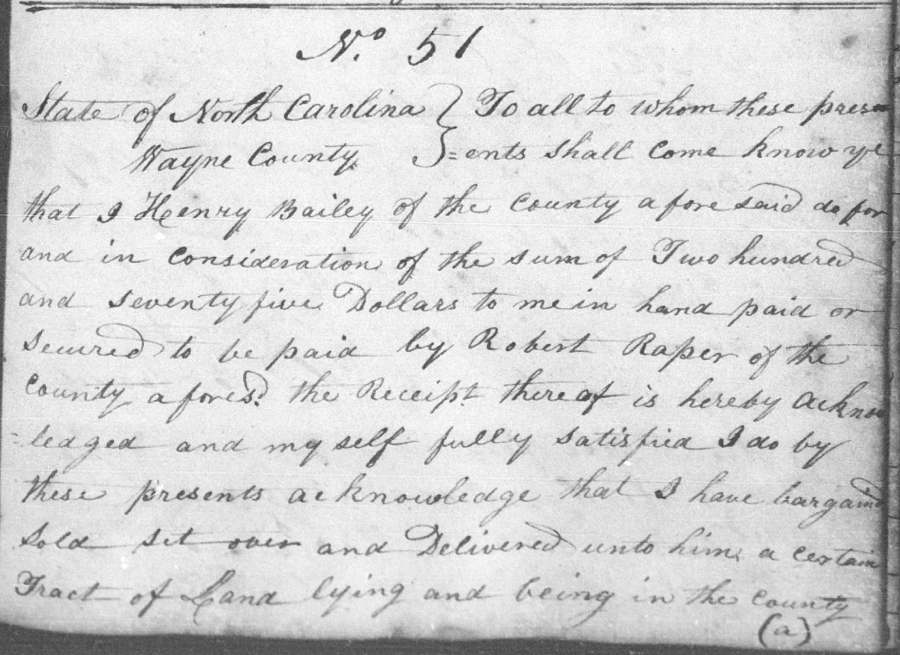 No. 51
State of North Carolina } To all to whom these pres=
Wayne County } =ents shall come know ye
that I Henry Bailey of the County afore said do for
and in consideration of the sum of Two hundred
and seventy five Dollars to me in hand paid or
secured to be paid by Robert Raper of the
County aforesd. the Receipt thereof is hereby acknow
=ledged and my self fully satisfied I do by
these presents acknowledge that I have bargaind
sold set over and Delivered unto him a certain
Tract of Land lying and being in the county
(a)